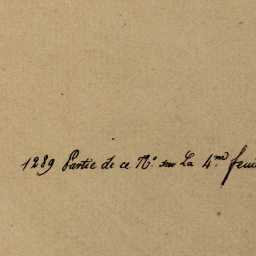 1289 Partie de ce N.º sur La 4.me feui